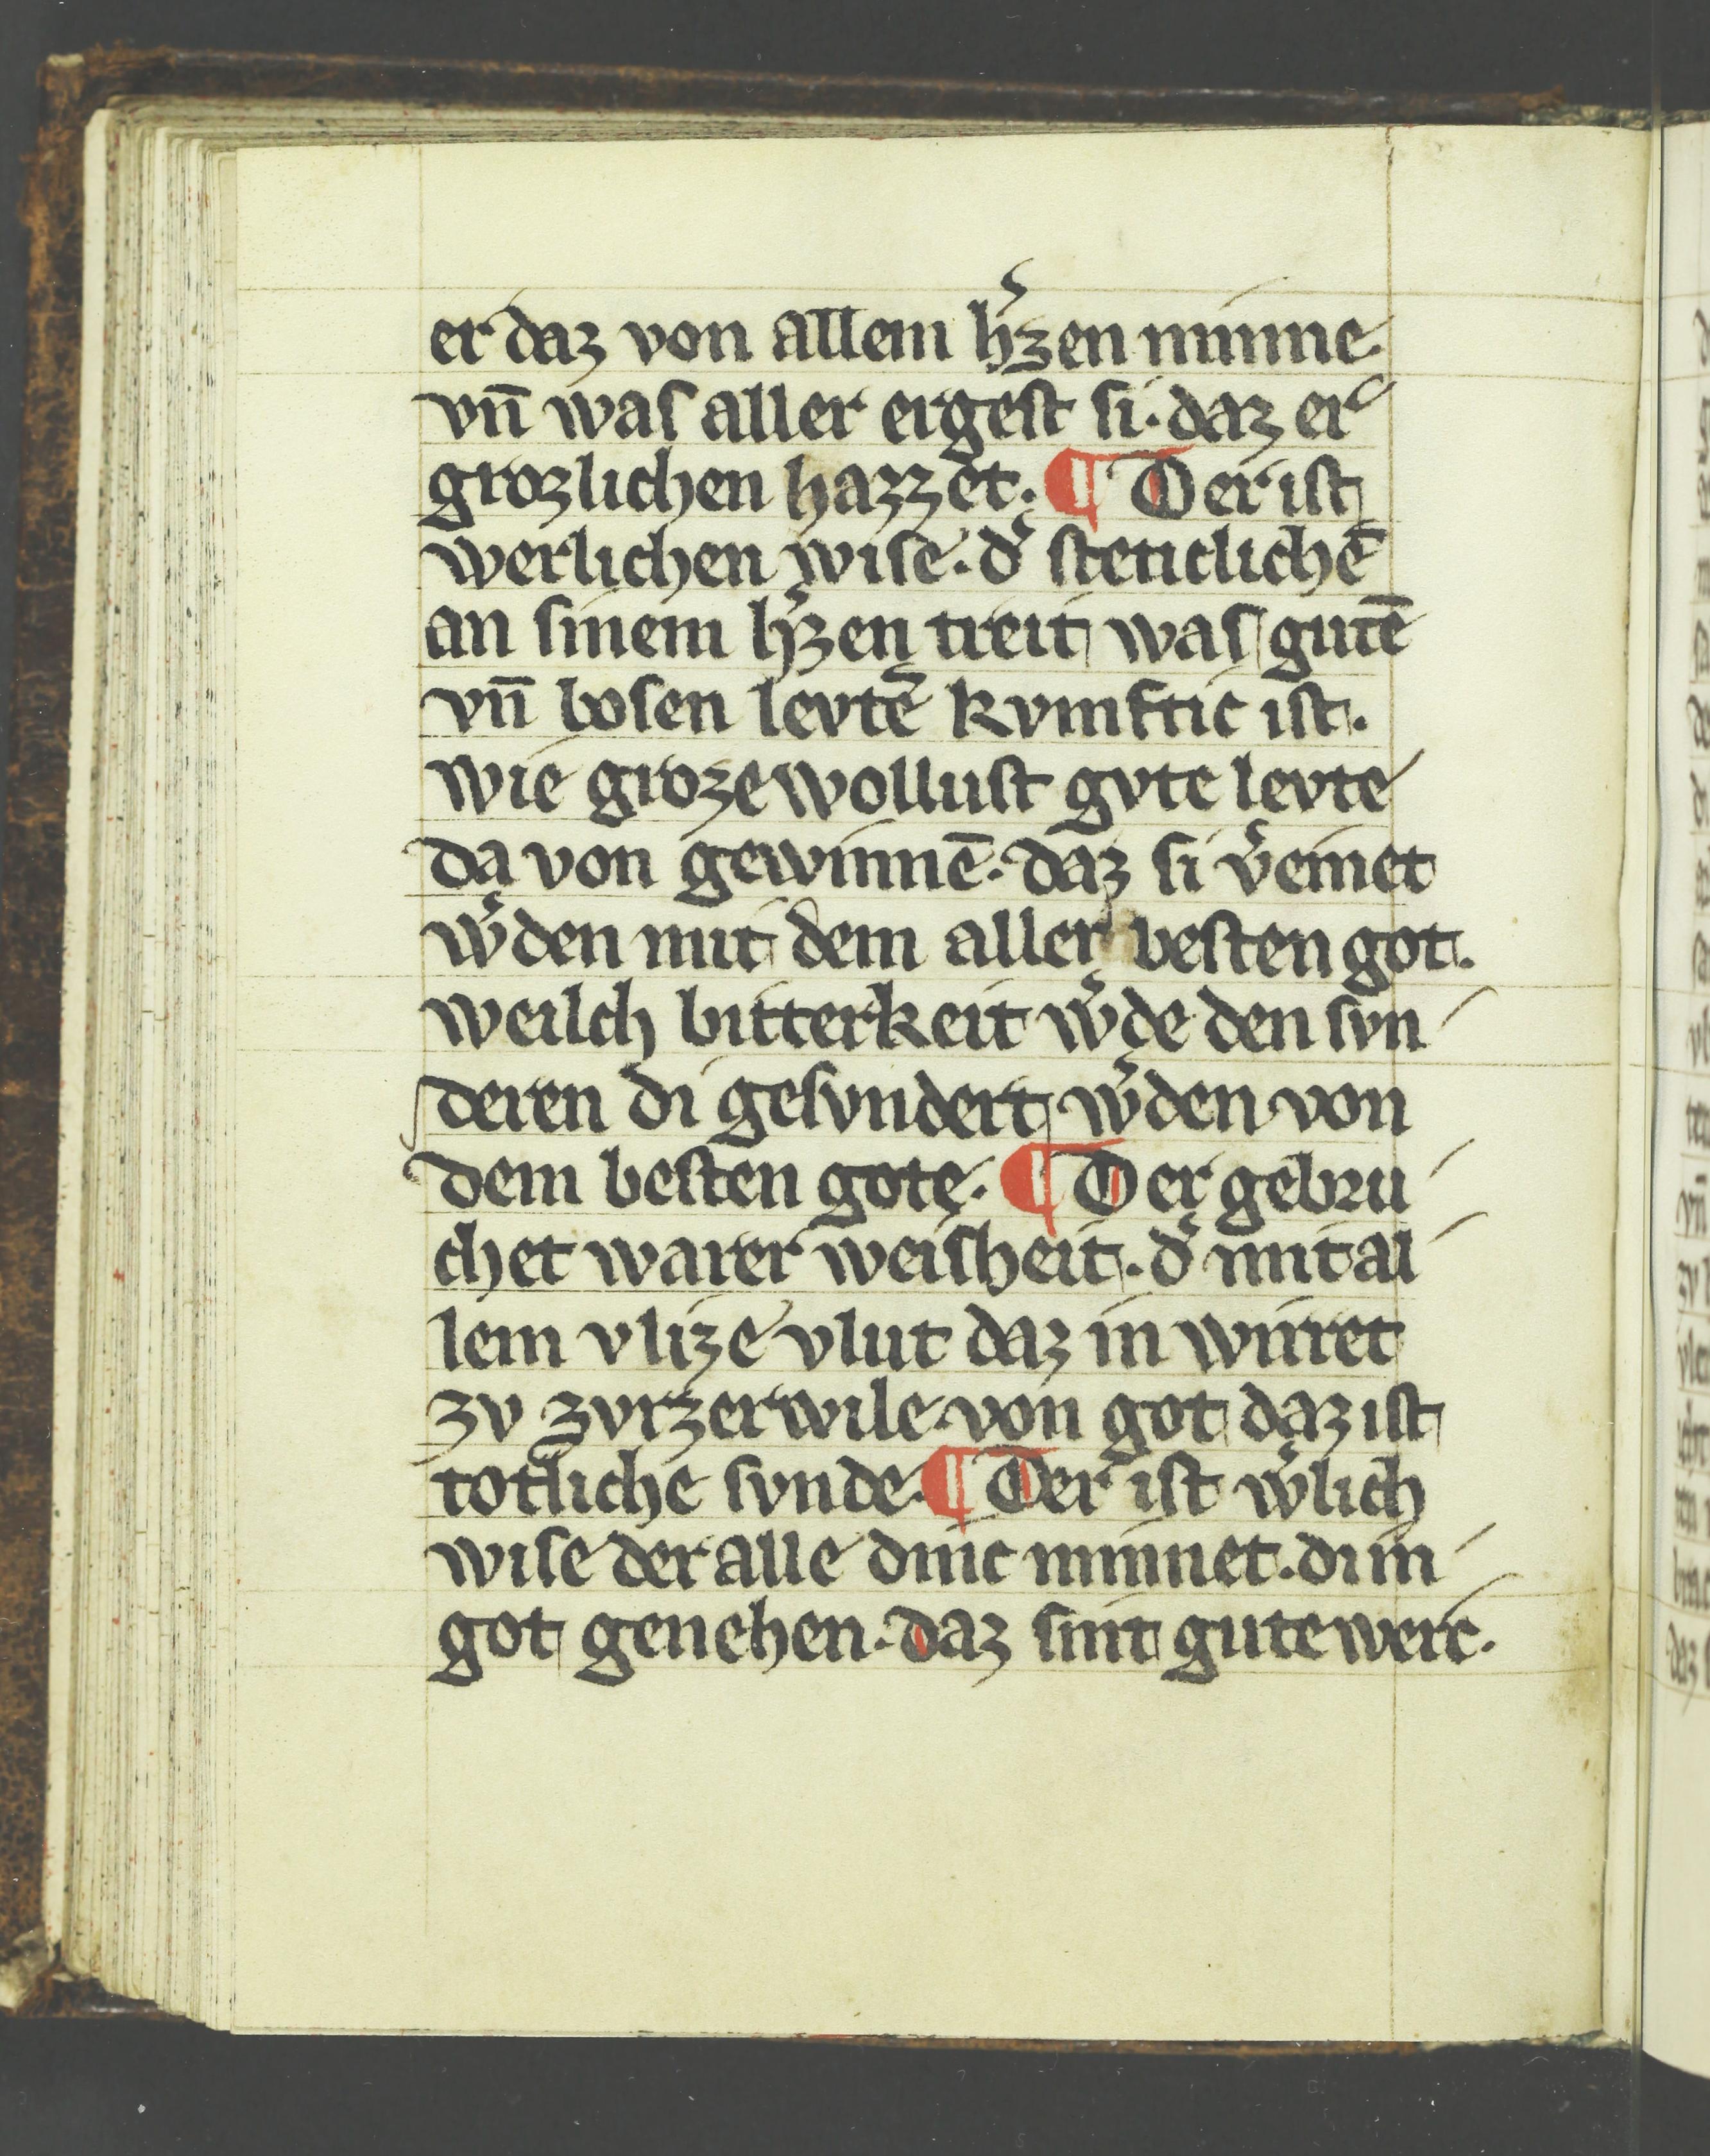 er daz von allem hˀzen minne.
vn̄ was aller ergest si. daz er
grozlichen hazzet. ¶ Der ist
werlichen wise. dˀ steticlichē
an sinem hˀzen treit was gutē
vn̄ bosen levtē kvmftic ist.
wie groze wollust gvte levte
da von gewinnē. daz si vˀeinet
wˀden mit dem aller besten got.
weilch bitterkeit wˀde den svn
deren di gesvndert wˀden von
dem besten gote. ¶ Der gebru
chet warer weisheit. dˀ mit al
lem vlize vlut daz in wirret
zv zvrzer wile von got daz ist
totliche svnde. ¶ Der ist wˀlich
wise der alle dinc minnet. di in
got genehen. daz sint gute werc.